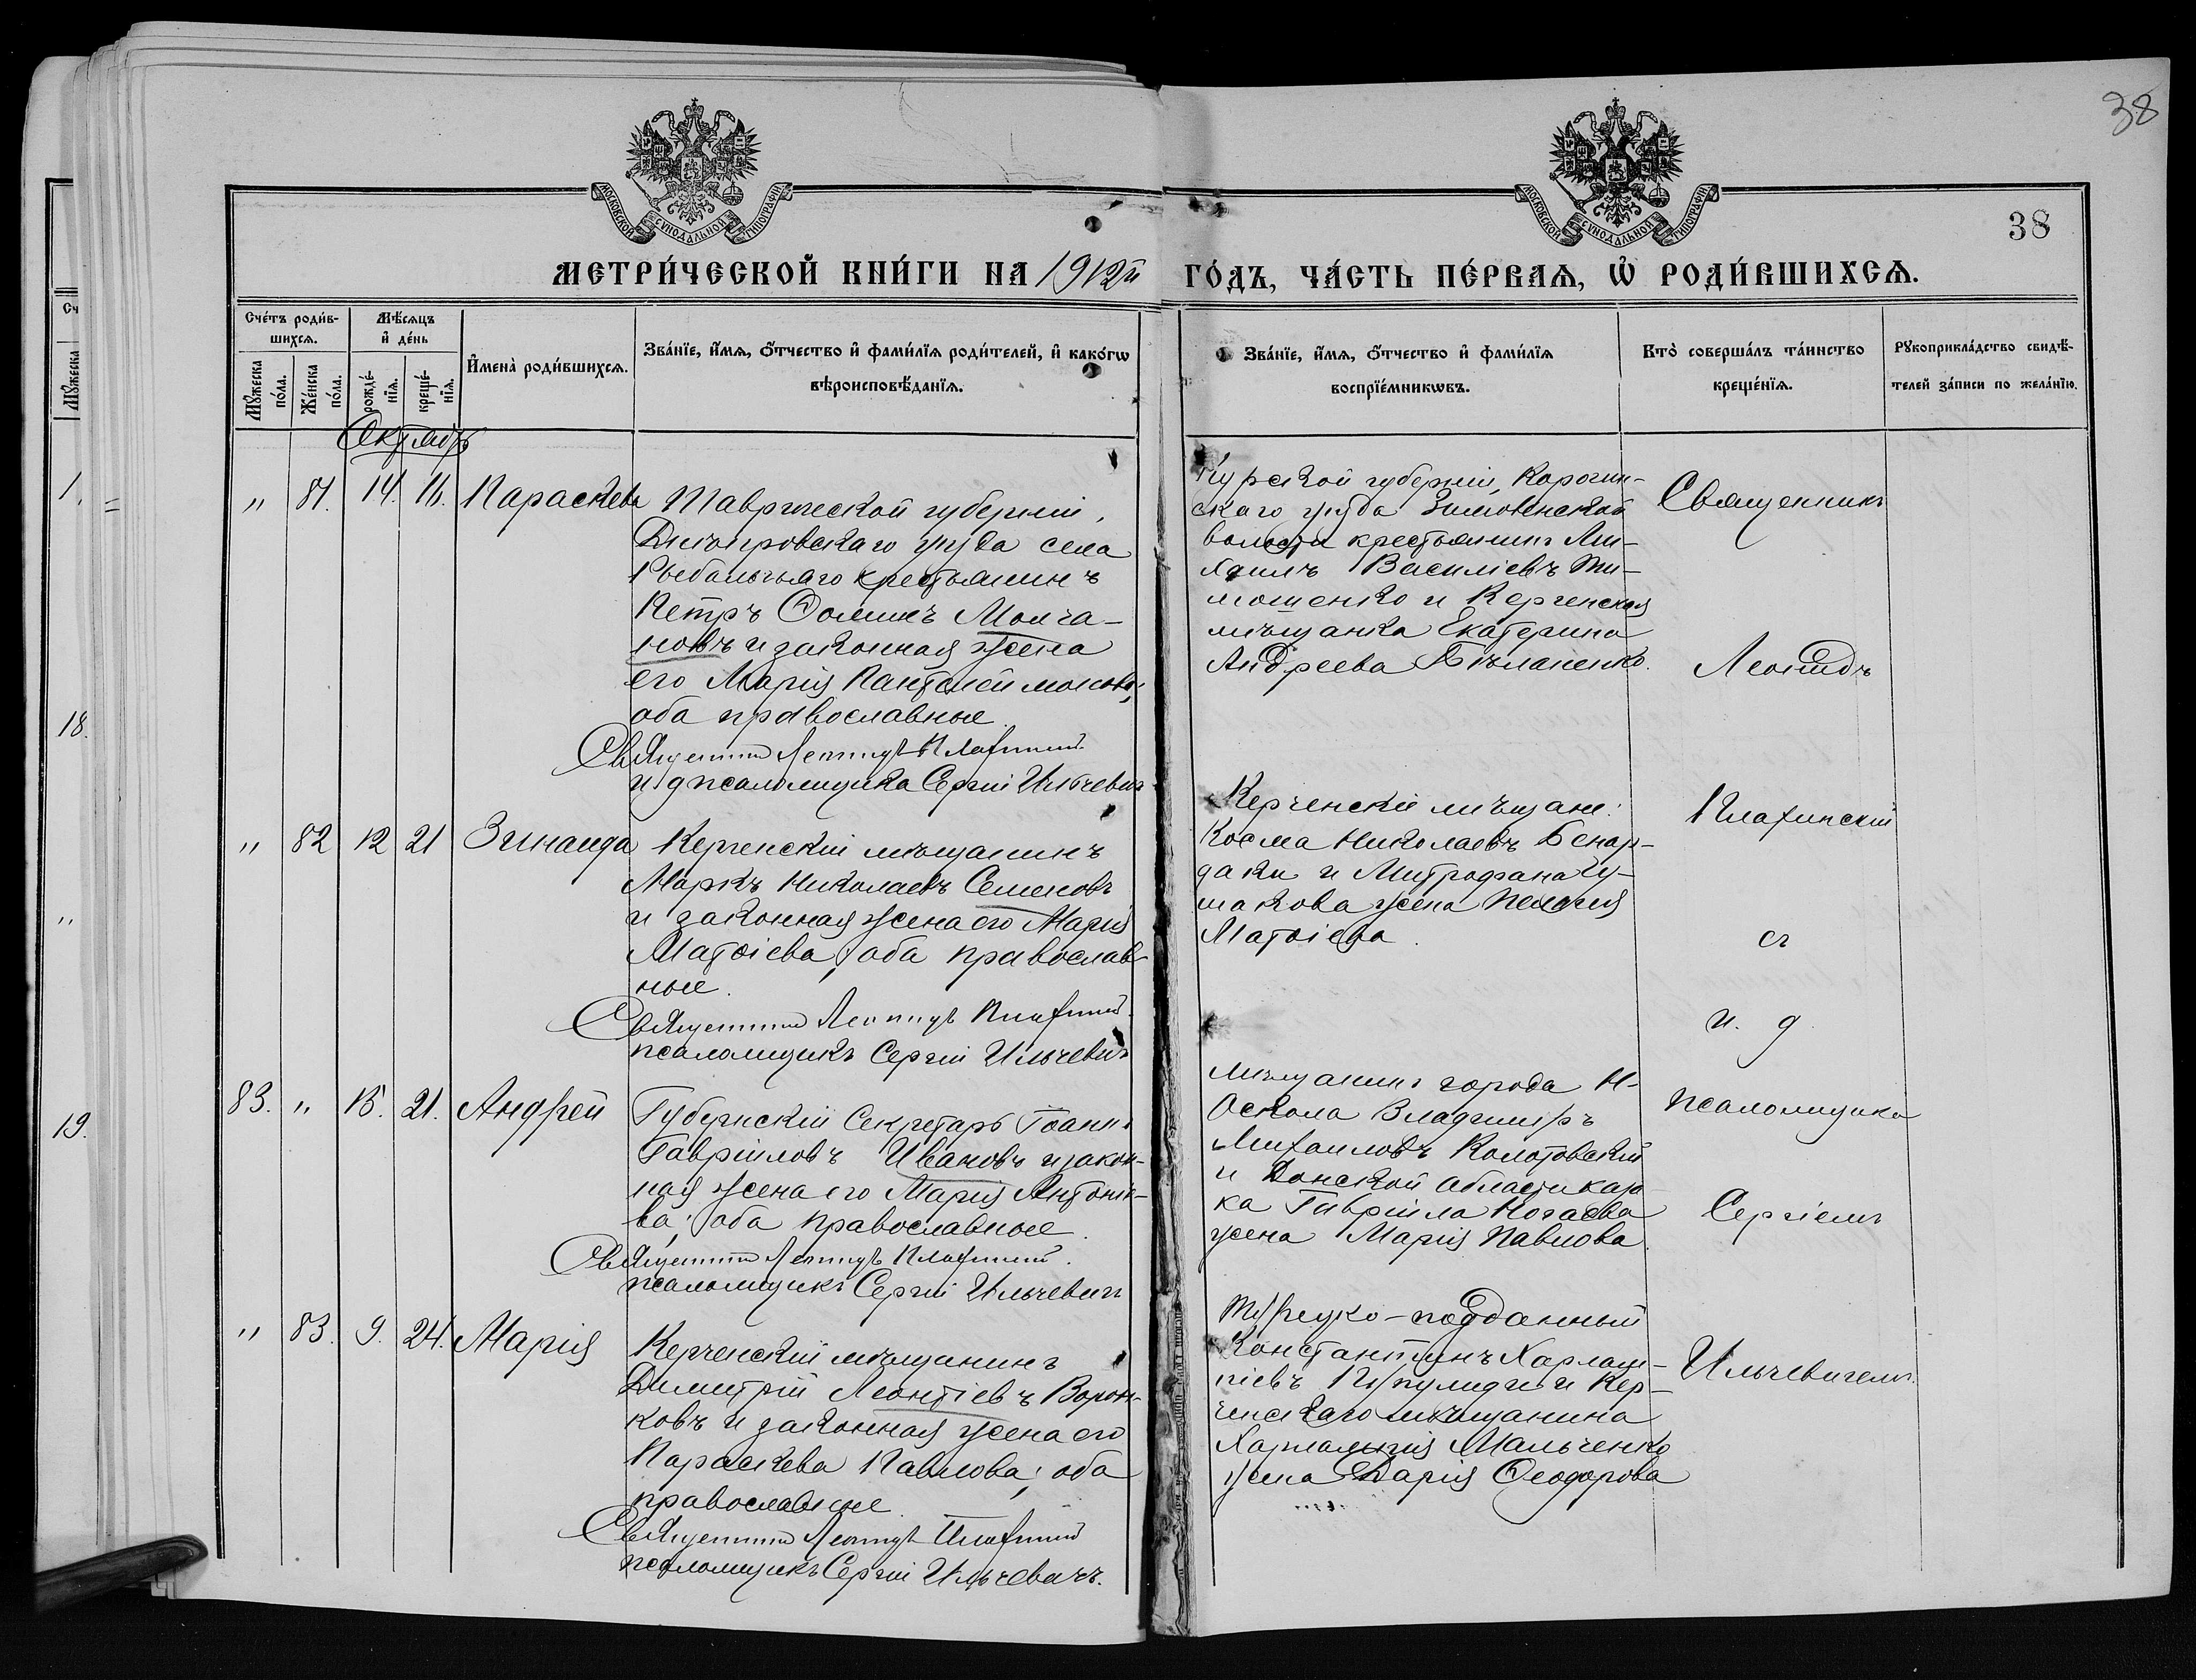 38
38
МОСКОВСКОЙ СѴНОДАЛЬНОЙ ТИПОГРАФІИ
МОСКОВСКОЙ СѴНОДАЛЬНОЙ ТИПОГРАФІИ
МЕТРИ́ЧЕСКОЙ КНИ́ГИ НА 1912й ГО́ДЪ, ЧА́СТЬ ПЕ́РВАѦ, Ѡ҆ РОДИ́ВШИХСѦ.
Сче́тъ роди́в-
шихсѧ.
Мꙋ́жеска по́ла.
Же́нска по́ла.
Мѣ́сѧцъ
и҆ де́нь
рожде́-нїѧ.
креще́-нїѧ.
И҆мена̀ роди́вшихсѧ.
Зва́нїе, и҆́мѧ, ѻ҆́тчество и҆ фами́лїѧ роди́телей, и҆ како́гѡ
вѣроисповѣ́данїѧ.
Зва́нїе, и҆́мѧ, ѻ҆́тчество и҆ фами́лїѧ
воспрїе́мникѡвъ.
Кто̀ соверша́лъ та́инство
креще́нїѧ.
Рꙋкоприкла́дство свидѣ́-
телей за́писи по жела́нїю.
Октябрь
" 81. 14. 16. Параскева
Таврической губерніи,
Днѣпровскаго уѣзда села
Рыбальчьяго крестьянинъ
Петръ Ѳоминъ Молча-
новъ и законная жена
его Марія Пантелеймонова;
оба православные.
Священникъ Леонидъ Плахинскій
и д псаломщика Сергій Ильчевичъ
Курской губерніи, Корочан-
скаго уѣзда Зимовенской
волости крестьянинъ Ми-
хаилъ Василіевъ Ти-
мошенко и Керченская
мѣщанка Екатерина
Андреева Бѣланенко.
" 82 12 21 Зинаида
Керченскій мѣщанинъ
Маркъ Николаевъ Семеновъ
и законная жена его Марія
Матѳіева; оба православ-
ные.
Священникъ Леонидъ Плахинскій
псаломщикъ Сергій Ильчевичъ
Керченскіе мѣщане:
Косма Николаевъ Бенар-
даки и Митрофана Чу-
макова жена Пелагія
Матѳіева.
83. " 15. 21. Андрей
Губернскій Секретарь Іоаннъ
Гавріиловъ Ивановъ и закон-
ная жена его Марія Антоніе-
ва; оба православные.
Священникъ Леонидъ Плахинскій.
псаломщикъ Сергій Ильчевичъ
Мѣщанинъ города Н-
Оскола Владиміръ
Михаиловъ Колотовскій
и Донской области каза
ка Гавріила Ногаева
жена Марія Павлова.
" 83. 9. 24. Марія
Керченскій мѣщанинъ
Димитрій Леонтіевъ Ворон-
ковъ и законная жена его
Параскева Павлова; оба
православные.
Священникъ Леонидъ Плахинскій
псаломщикъ Сергій Ильчевичъ.
Турецко-подданный
Константинъ Харлам-
піевъ и Кер-
ченскаго мѣщанина
Харлампія Мальченко
жена Дарія Ѳеодорова
Священникъ
Леонидъ
Плахинскій
съ
и. д.
псаломщика
Сергіемъ
Ильчевичемъ.
Сч
Мꙋ́жеска
1.
18.
"
19.